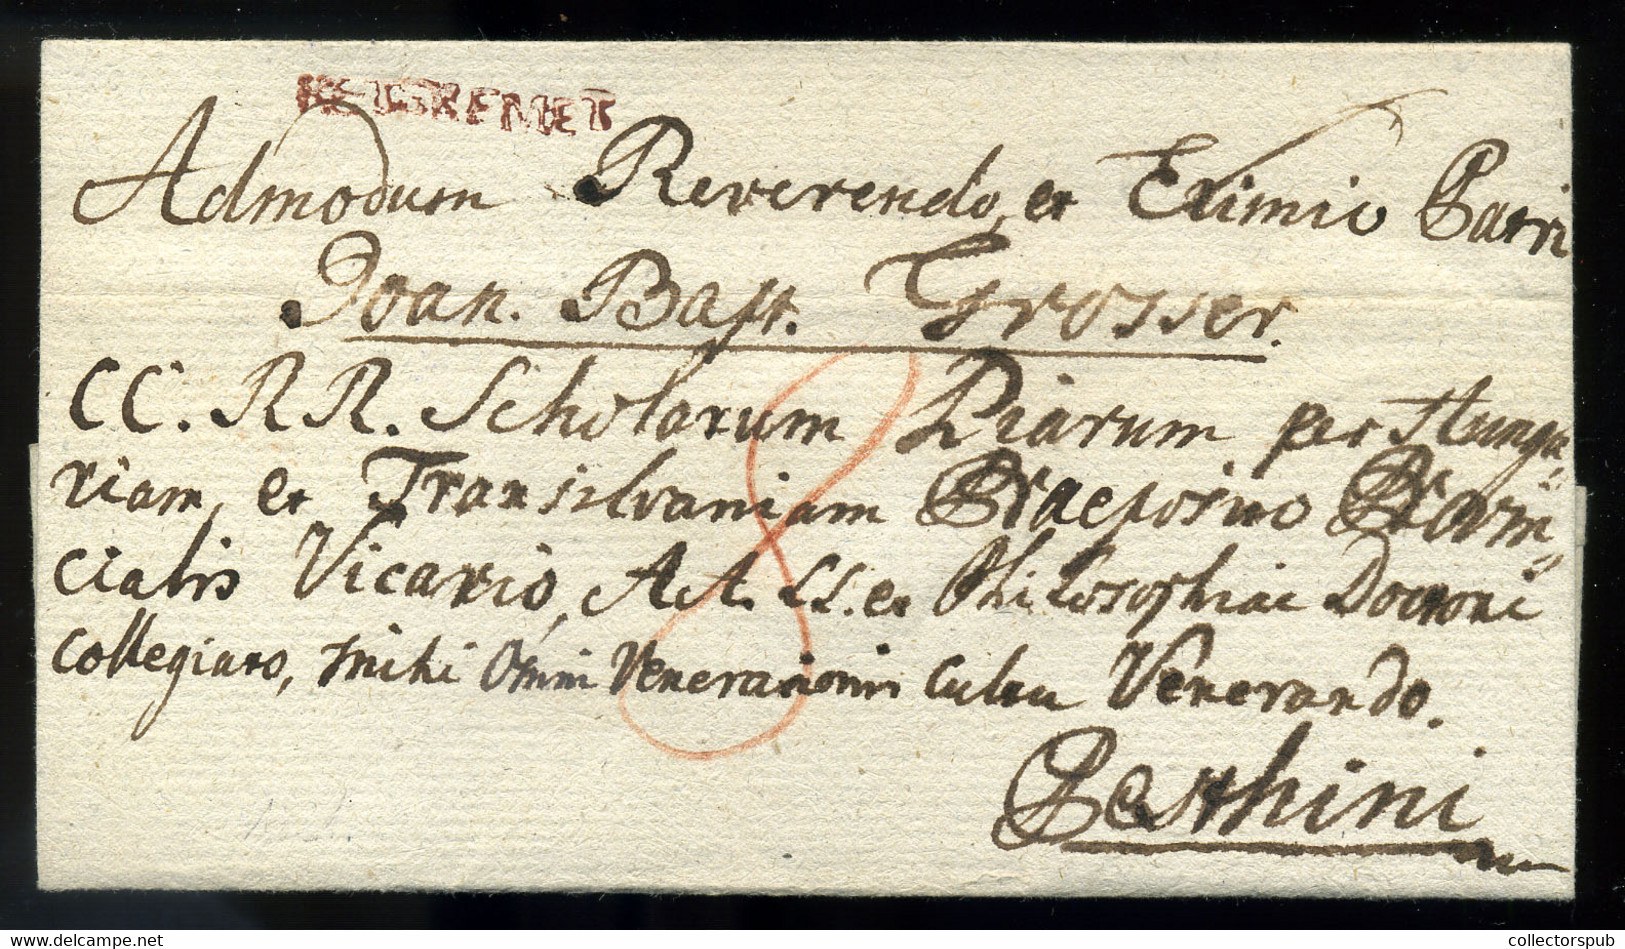 KETSKEMET
Admodum Reverendo, et Eximio Patri
Joan. Bapt. Grosser.
CC. RR. Scholarum Piarum per Hunga=
riam, et Transilvaniam Praeposito Provin=
cialis Vicario, AA. LL. et Philosophiae Doctori
Collegiato, mihi Omni Venerationis cultu Venerando.
8
Pesthini
collectorspub